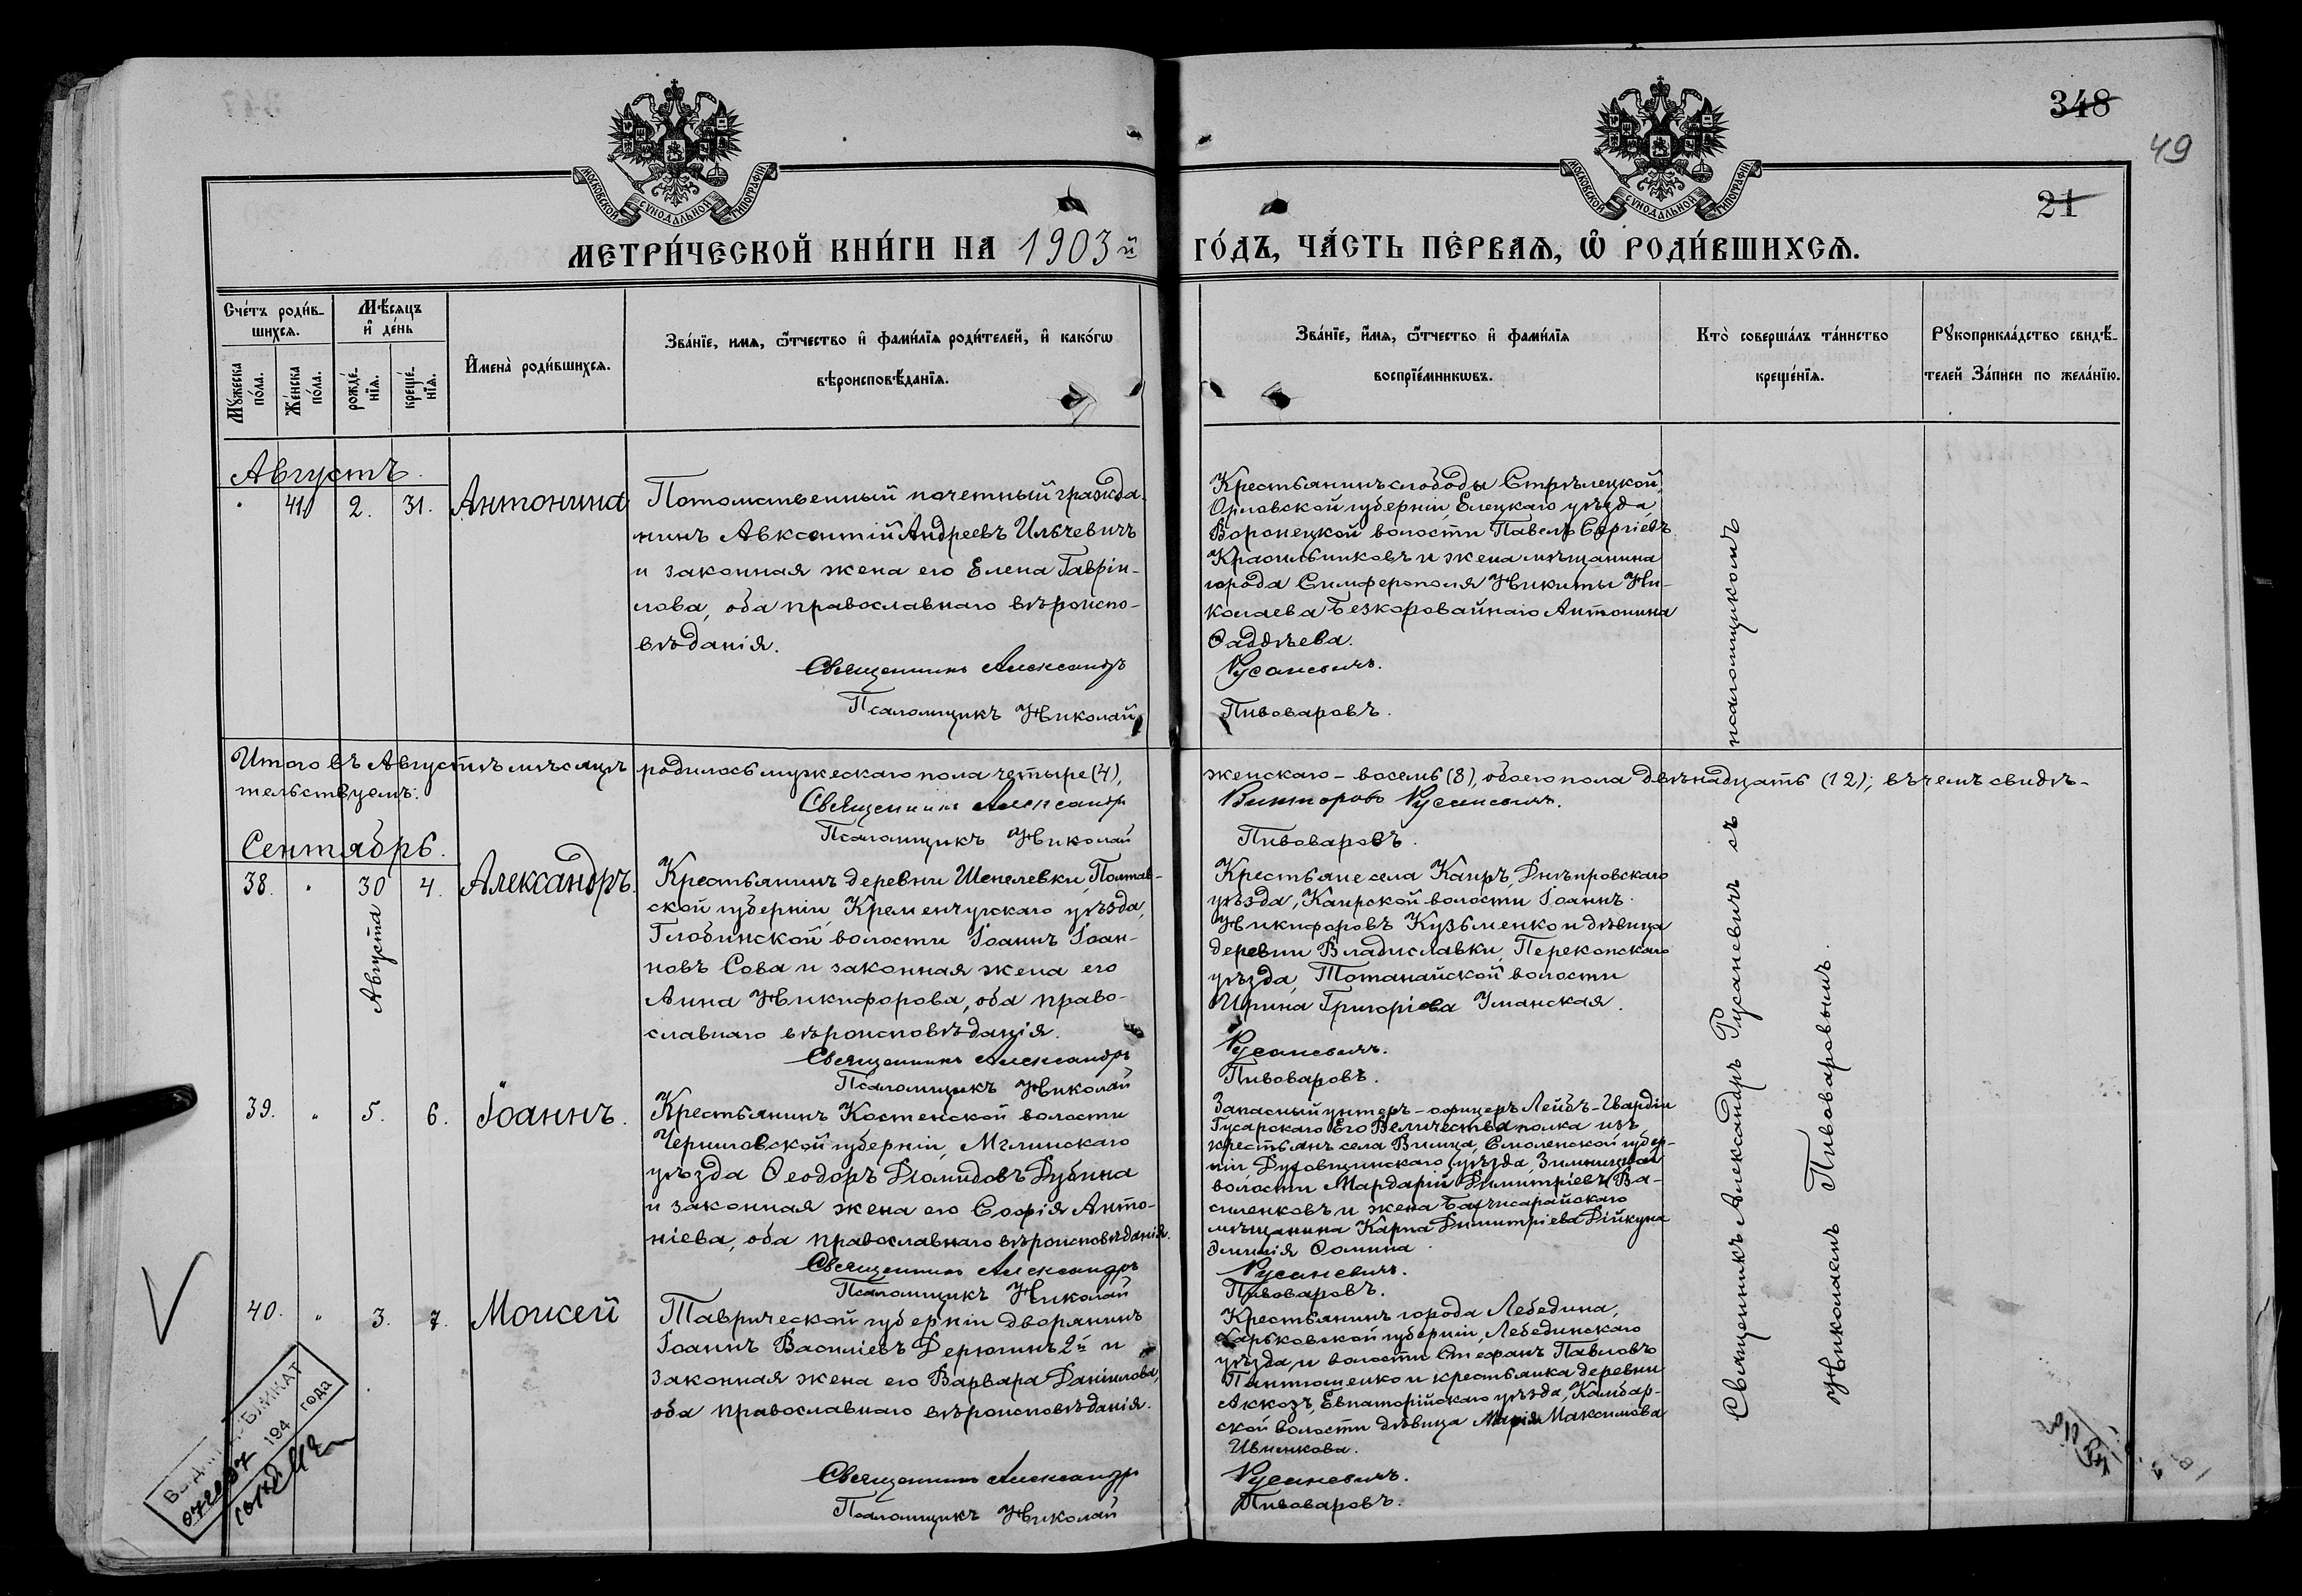 348
49
21
МОСКОВСКОЙ СУНОДАЛЬНОЙ ТИПОГРАФІИ
МОСКОВСКОЙ СУНОДАЛЬНОЙ ТИПОГРАФІИ
МЕТРИ́ЧЕСКОЙ КНИ́ГИ НА 1903й
ГО́ДЪ, ЧА́СТЬ ПЕ́РВАѦ, Ѽ РОДИ́ВШИХСѦ.
Сче́тъ роди́в-
шихсѧ.
Мꙋ́жеска
по́ла.
Же́нска
по́ла.
Мѣ́сѧцъ
и҆ де́нь
рожде́-
нїѧ.
креще́-
нїѧ.
И҆мена̀ роди́вшихсѧ.
Зва́нїе, имѧ, ѻ҆́тчество и҆ фами́лїѧ роди́телей, и҆ како́гѡ
вѣроисповѣ́данїѧ.
Зва́нїе, и҆́мѧ, ѻ҆́тчество и҆ фами́лїѧ
воспрїе́мникѡвъ.
Кто̀ соверша́лъ та́инство
креще́нїѧ.
Рꙋкоприкла́дство свидѣ́-
телей За́писи по жела́нїю.
Августъ.
" 41 2. 31. Антонина
Потомственный почетный гражда-
нинъ Авксентій Андреевъ Ильчевичъ
и законная жена его Елена Гаврiи-
лова, оба православнаго вѣроиспо-
вѣданія.
Священникъ Александръ
Псаломщикъ Николай
Крестьянинъ слободы Стрѣлецкой,
Орловской губерніи, Елецкаго уѣзда,
Воронецкой волости Павелъ Сергіевъ
Красильниковъ и жена мѣщанина
города Симферополя Никиты Ни-
колаева Безкоровайнаго Антонина
Фаддѣева.
Русаневичъ.
Пивоваровъ.
Итого въ Августѣ мѣсяцѣ родилось мужескаго пола четыре (4), женскаго – восемь (8), обоего пола двѣнадцать (12); въ чемъ свидѣ-
тельствуемъ:
Священникъ Александръ Викторовъ Русаневичъ.
Псаломщикъ Николай Пивоваровъ.
Сентябрь.
38. " 30 Августа 4. Александръ.
Крестьянинъ деревни Шепелевки, Полтав-
ской губерніи, Кременчугскаго уѣзда,
Глобинской волости Іоаннъ Іоан-
новъ Сова и законная жена его
Анна Никифорова, оба право-
славнаго вѣроисповѣданія.
Священникъ Александръ
Псаломщикъ Николай
Крестьяне села Каиръ, Днѣпровскаго
уѣзда, Каирской волости Іоаннъ
Никифоровъ Кузьменко и дѣвица
деревни Владиславки, Перекопскаго
уѣзда, Тотанайской волости
Ирина Григоріева Уманская.
Русаневичъ.
Пивоваровъ.
39. " 5. 6. Іоаннъ.
Крестьянинъ Костенской волости
Черниговской губерніи, Мглинскаго
уѣзда Ѳеодоръ Діомидовъ Дубина
и законная жена его Софія Анто-
ніева, оба православнаго вѣроисповѣданія.
Священникъ Александръ
Псаломщикъ Николай
Запасный унтеръ-офицеръ Лейбъ-Гвардіи
Гусарскаго Его Величества полка изъ
крестьянъ села Смоленской губер-
ніи, Духовщинскаго уѣзда,
волости Мардарій Димитріевъ Ва-
силенковъ и жена Бахчисарайскаго
мѣщанина Карпа Димитріева Дійкуна
Ѳомина.
Русаневичъ.
Пивоваровъ.
40. " 3. 7. Моисей
Таврической губерніи дворянинъ
Іоаннъ Василіевъ Дерюгинъ 2й и
законная жена его Варвара Даніилова,
оба православнаго вѣроисповѣданія.
Священникъ Александръ
Псаломщикъ Николай
Крестьянинъ города Лебедина,
Харьковской губерніи, Лебединскаго
уѣзда и волости Стефанъ Павловъ
Пантюшенко и крестьянка деревни
Аккозъ, Евпаторійскаго уѣзда, Камбар-
ской волости дѣвица Марія Максимова
Ивненкова.
Русаневичъ.
Пивоваровъ.
Священникъ Александръ Русаневичъ съ псаломщикомъ
Николаемъ Пивоваровымъ.
194 года